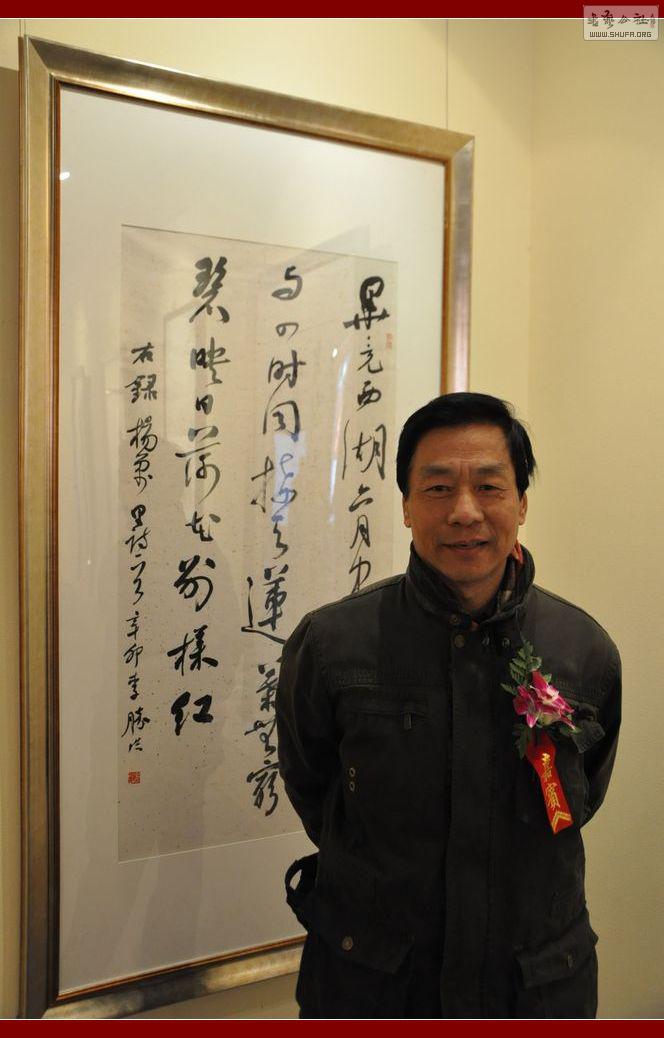 書藝公社
WWW.SHUFA.ORG
畢竟西湖六月中
与四时同接天蓮葉無窮
碧映日荷花別樣紅
右録楊萬里詩一首辛卯李勝洪
嘉賓